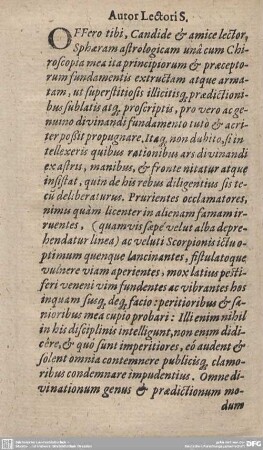 Autor Lectori S.
OFFero tibi, Candide & amice lector,
Sphæram astrologicam unà cum Chi-
roscopia mea ita principiorum & præcepto-
rum fundamentis extructam atque arma-
tam, ut superstitiosis illicitisq; prædictioni-
bus sublatis atq; proscriptis, pro vero ac ge-
nuino divinandi fundamento tutò & acri-
ter possit propugnare. Itaq; non dubito, si in-
tellexeris quibus rationibus ars divinandi
ex astris, manibus, & fronte nitatur atque
insistat, quin de his rebus diligentius sis te-
cū deliberaturus. Prurientes occlamatores,
nimis quàm licenter in alienam famam ir-
ruentes, (quamvis sæpe velut alba depre-
hendatur linea) ac veluti Scorpionis ictu o-
ptimum quenque lancinantes, fistulatoque
vulnere viam aperientes, mox latius pesti-
feri veneni vim fundentes ac vibrantes hos
inquam susq; deq; facio: peritioribus & sa-
nioribus mea cupio probari: Illi enim nihil
in his disciplinis intelligunt, non enim didi-
cêre, & quò sunt imperitiores, eò audent &
solent omnia contemnere publicisq; clamo-
ribus condemnare impudentius. Omne di-
vinationum genus & prædictionum mo-
dum